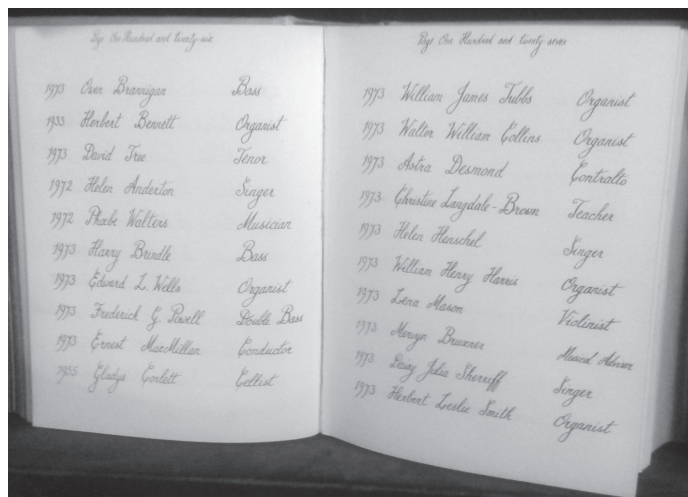 Page One Hundred and twenty-six
1973 Owen Brannigan Bass
1933 Herbert Bennett Organist
1973 David Tree Tenor
1972 Helen Anderton Singer
1972 Phœbe Walters Musician
1973 Harry Brindle Bass
1973 Edward L. Wells Organist
1973 Frederick G. Powell Double Bass
1973 Ernest MacMillan Conductor
1955 Gladys Corlett Cellist
Page One Hundred and twenty seven
1973 William James Tubbs Organist
1973 Walter William Collins Organist
1973 Astra Desmond Contralto
1973 Christine Langdale-Brown Teacher
1973 Helen Henschel Singer
1973 William Henry Harris Organist
1973 Lena Mason Violinist
1973 Mervyn Bruxner Musical Adviser
1973 Julia Sherreff Singer
1973 Herbert Leslie Smith Organist